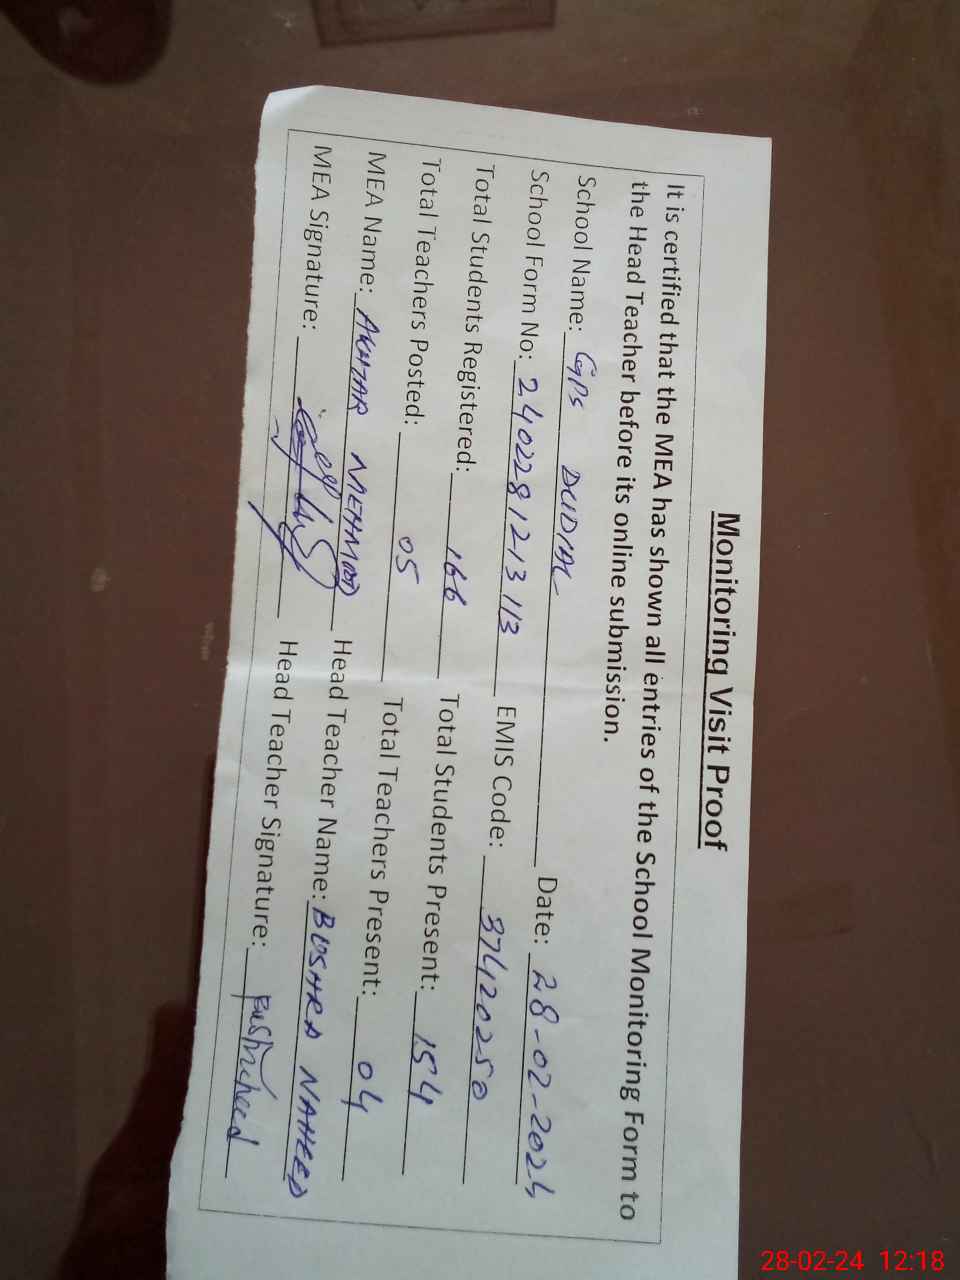 Monitoring Visit Proof
It is certified that the MEA has shown all entries of the School Monitoring Form to
the Head Teacher before its online submission.
School Name: GPS DUDIAL Date: 28-02-2024
School Form No: 2402281213113 EMIS Code: 37420250
Total Students Registered: 166 Total Students Present: 154
Total Teachers Posted: 05 Total Teachers Present: 04
MEA Name: AKHTAR MEHMOOD Head Teacher Name: BUSHRA NAHEED
MEA Signature: Head Teacher Signature:
28-02-24 12:18